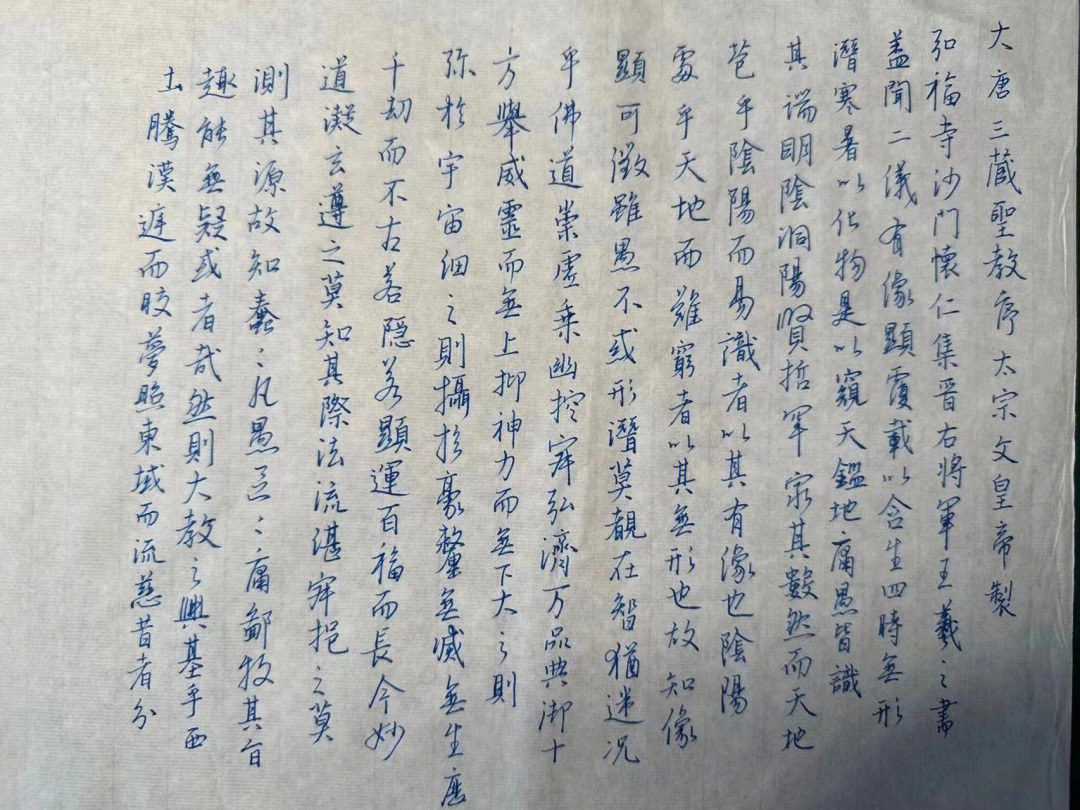 大唐三蔵聖教序太宗文皇帝製
弘福寺沙門懐仁集晋右将軍王羲之書
盖聞二儀有像顯覆載以含生四時無形
潛寒暑以化物是以窺天鑑地庸愚皆識
其端明陰洞陽賢哲罕窮其數然而天地
苞乎陰陽而易識者以其有像也陰陽
處乎天地而難窮者以其無形也故知像
顯可徵雖愚不惑形潛莫覩在智猶迷況
乎佛道崇虚乗幽控寂弘濟万品典御十
方舉威靈而無上抑神力而無下大之則
弥於宇宙細之則攝於豪釐無滅無生歷
千劫而不古若隠若顯運百福而長今妙
道凝玄遵之莫知其際法流湛寂挹之莫
測其源故知蠢〻凡愚區〻庸鄙投其旨
趣能無疑或者哉然則大教之興基乎西
土騰漢庭而晈夢照東域而流慈昔者分